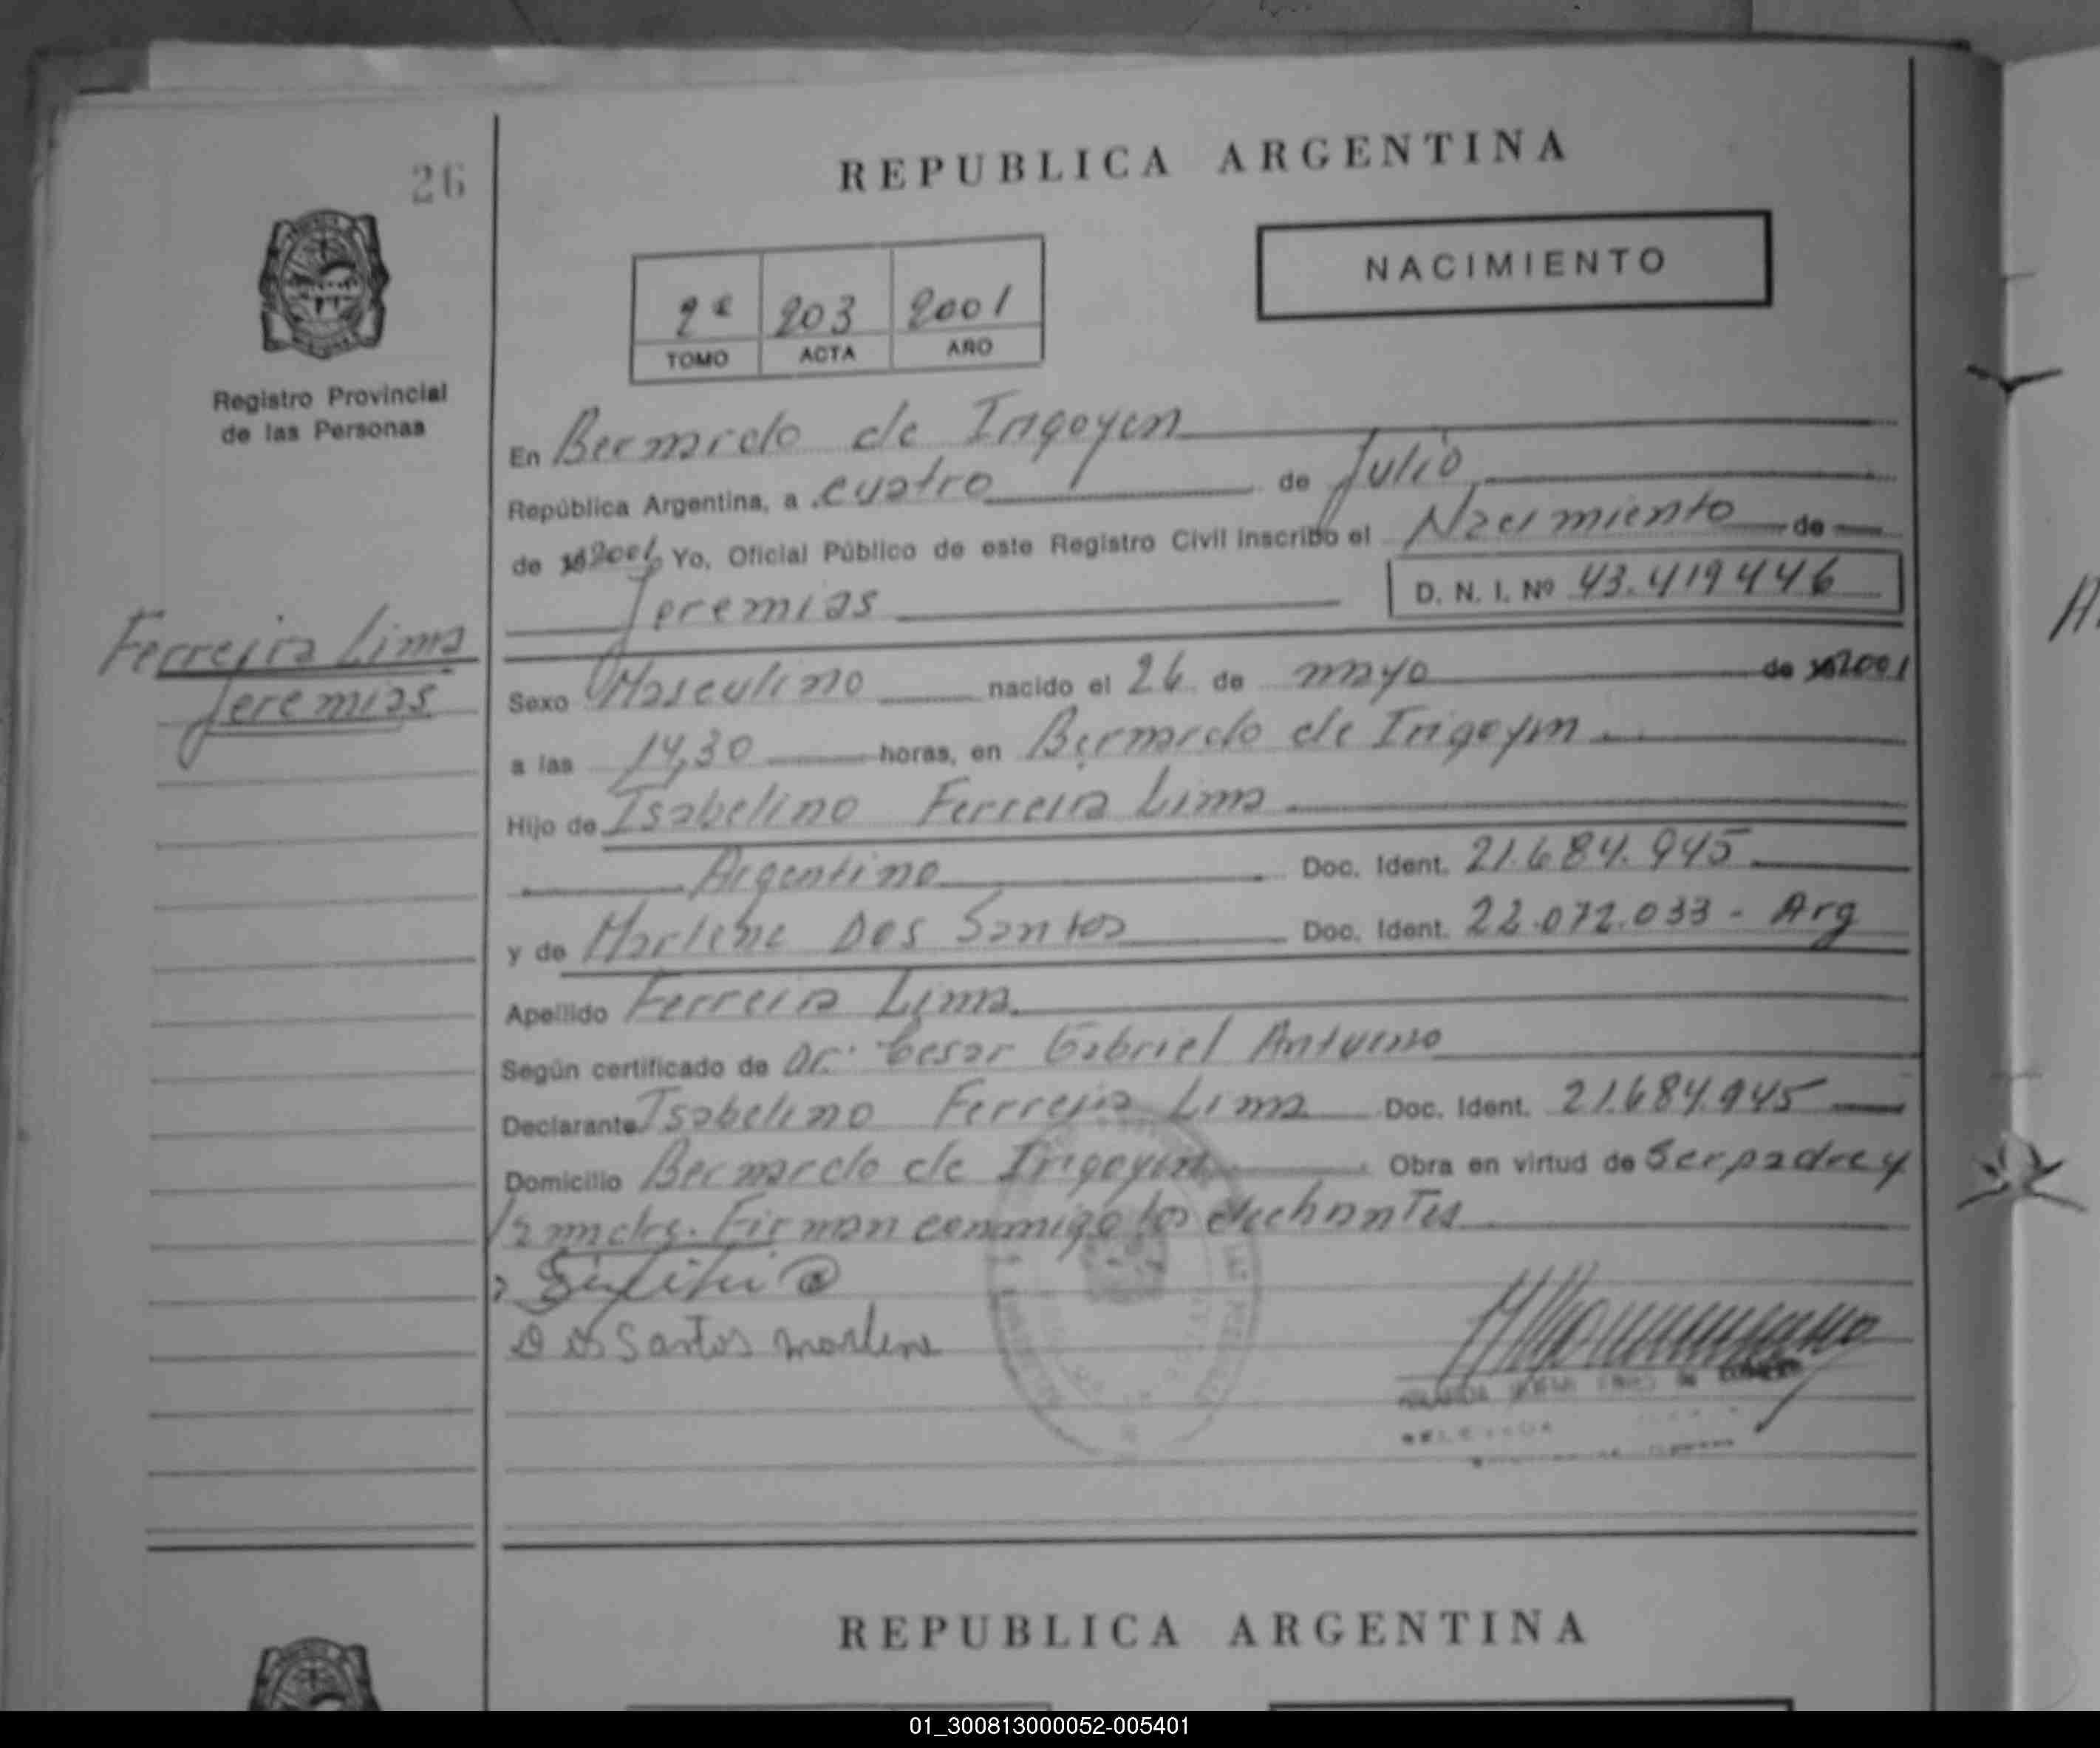 26
REPUBLICA ARGENTINA
NACIMIENTO
2º 203 2001
TOMO ACTA AÑO
Registro Provincial
de las Personas
En Bernardo de Irigoyen
República Argentina, a cuatro de Julio
de 2001 Yo, Oficial Público de este Registro Civil inscribo el Nacimiento de
Jeremias D. N. I. Nº 43.419446
Ferreira Lima
Jeremias
Sexo Masculino nacido el 26 de mayo de 2001
a las 14,30 horas, en Bernardo de Irigoyen
Hijo de Isabelino Ferreira Lima
Argentino Doc. Ident. 21.684.945
y de Marlene Dos Santos Doc. Ident. 22.072.033 - Arg
Apellido Ferreira Lima
Según certificado de Dr. Cesar Gabriel Antunno
Declarante Isabelino Ferreira Lima Doc. Ident. 21.684.945
Domicilio Bernardo de Irigoyen Obra en virtud de Ser padre y
la madre. Firman conmigo los declarantes
Dos Santos marlene
REPUBLICA ARGENTINA
01_300813000052-005401